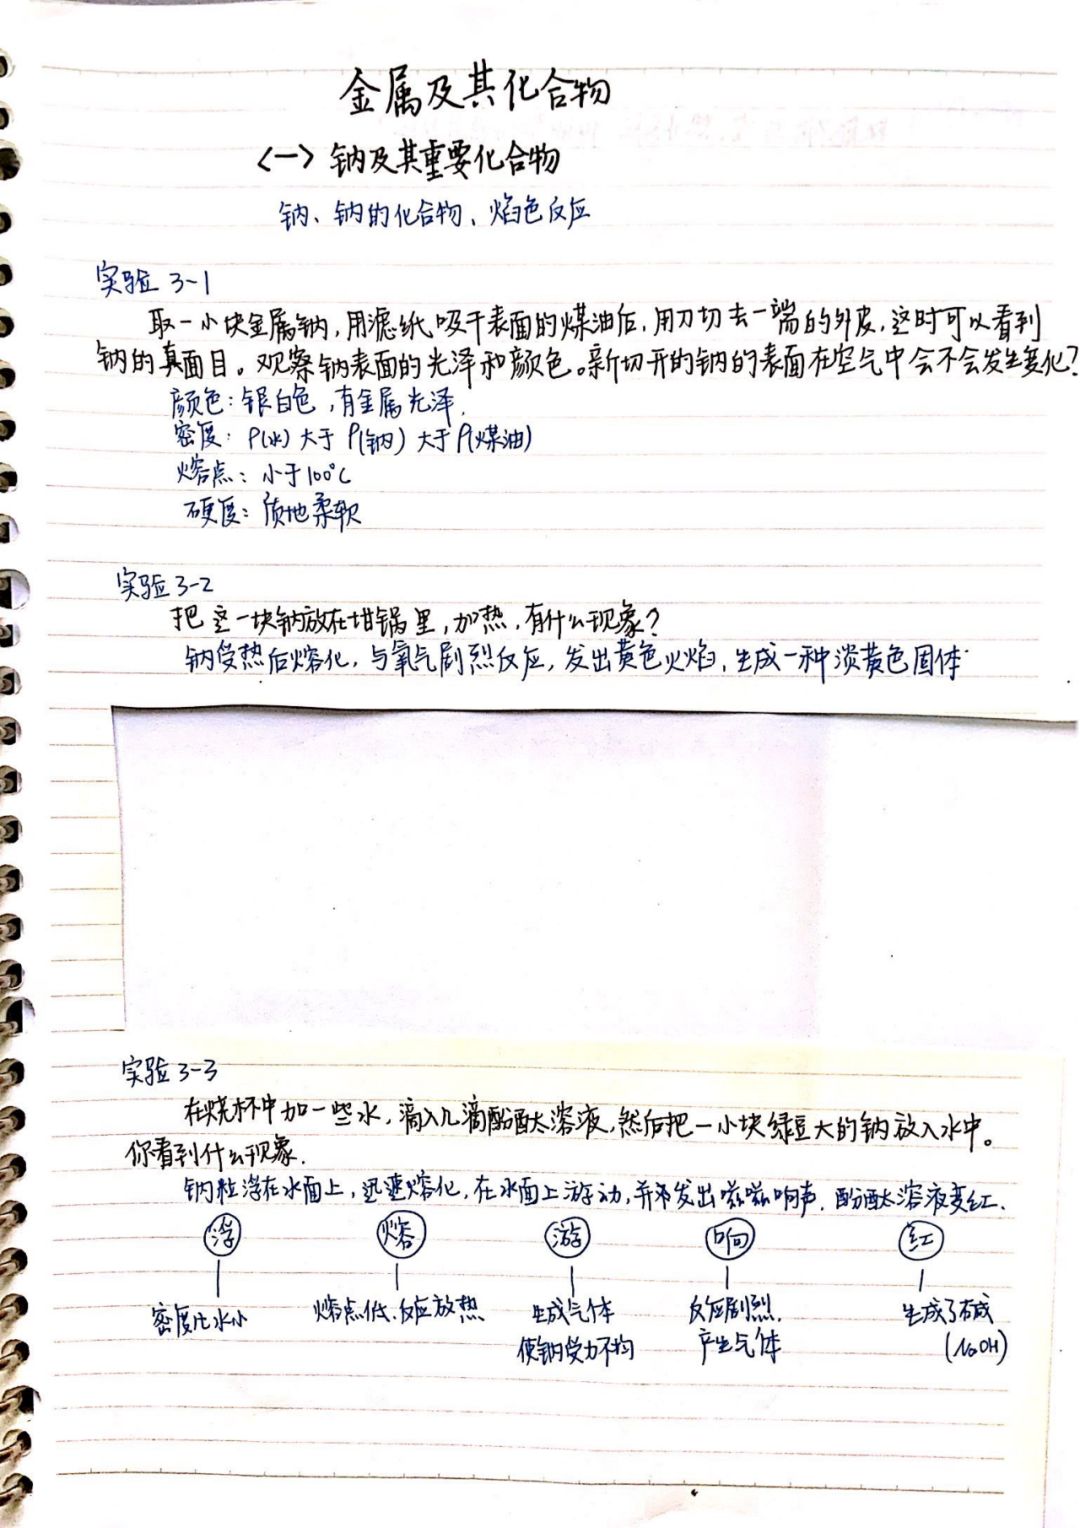 金属及其化合物
<一> 钠及其重要化合物
钠、钠的化合物、焰色反应
实验 3-1
取一小块金属钠,用滤纸吸干表面的煤油后,用刀切去一端的外皮,这时可以看到
钠的真面目。观察钠表面的光泽和颜色。新切开的钠的表面在空气中会不会发生变化?
颜色:银白色,有金属光泽.
密度:ρ(水)大于ρ(钠)大于ρ(煤油)
熔点:小于100℃
硬度:质地柔软
实验3-2
把这一块钠放在坩锅里,加热,有什么现象?
钠受热后熔化,与氧气剧烈反应,发出黄色火焰,生成一种淡黄色固体
实验3-3
在烧杯中加一些水,滴入几滴酚酞溶液,然后把一小块绿豆大的钠放入水中。
你看到什么现象.
钠粒浮在水面上,迅速熔化,在水面上游动,并发出嗞嗞响声.酚酞溶液变红.
浮 熔 游 响 红
密度比水小 熔点低.反应放热 生成气体 反应剧烈. 生成了碱
使钠受力不均 产生气体 (NaOH)